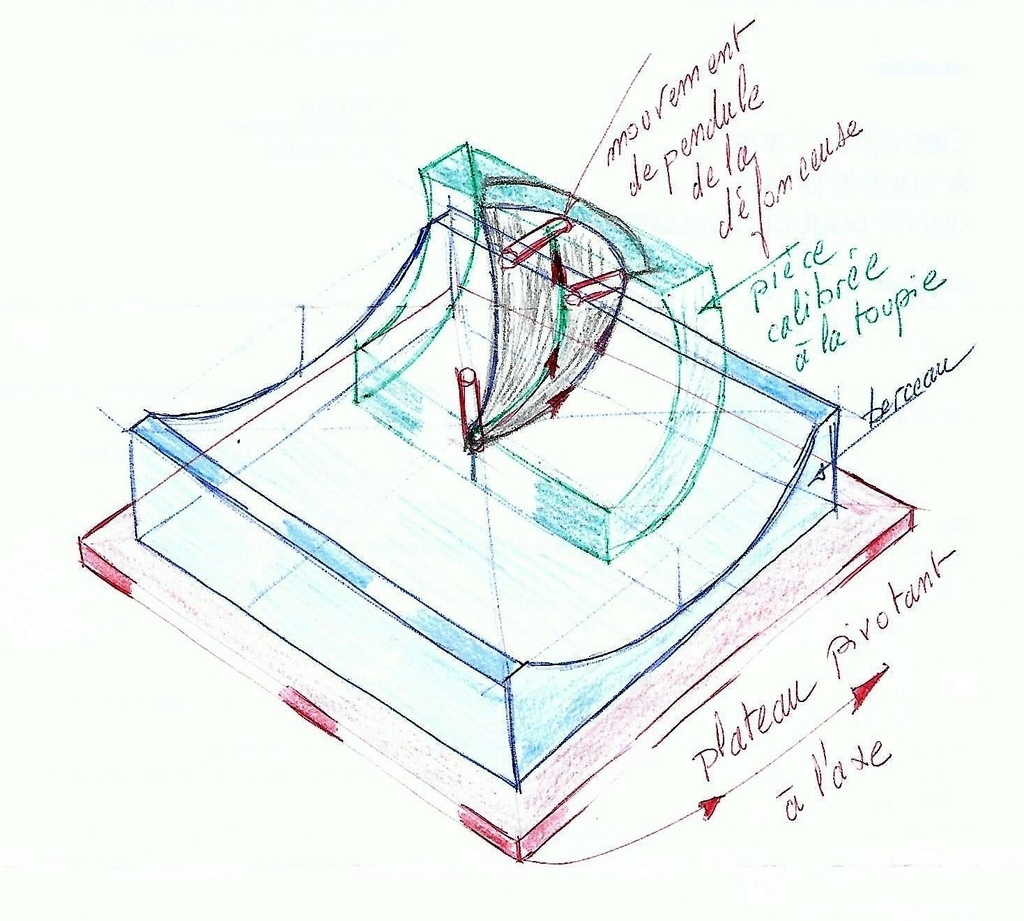 mouvement
de pendule
de la
défonceuse
pièce
calibrée
à la toupie
berceau
plateau pivotant
à l'axe